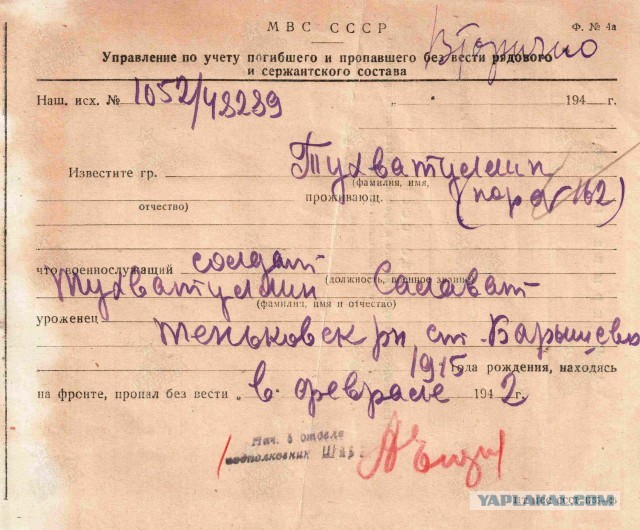 МВС СССР
Ф. № 4а
Вторично
Управление по учету погибшего и пропавшего без вести рядового
и сержантского состава
Наш. исх. № 1052/48289 „ 194 г.
Известите гр. Тухватуллин
(фамилия, имя,
отчество) проживающ. (пар 162)
что военнослужащий солдат
(должность, военное звание)
Тухватуллин Салават
(фамилия, имя и отчество)
уроженец Теньковск рн, ст. Барышево
1915 года рождения, находясь
на фронте, пропал без вести „ в феврале 1942
Нач. 6 отдела
подполковник
YAPLAKAL.COM